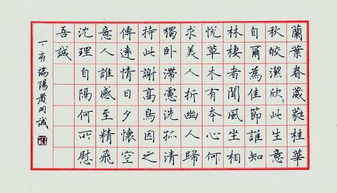 蘭葉春葳蕤桂華
秋皎潔欣〻此生意
自爾為佳節誰知
林棲者聞風坐相
悅草木有本心何
求美人折幽人歸
獨臥滯慮洗孤清
持此謝高鳥因之
傳遠情日夕懷空
意人誰感至精飛
沈理自隔何所慰
吾誠
丁亥端陽黃明誠